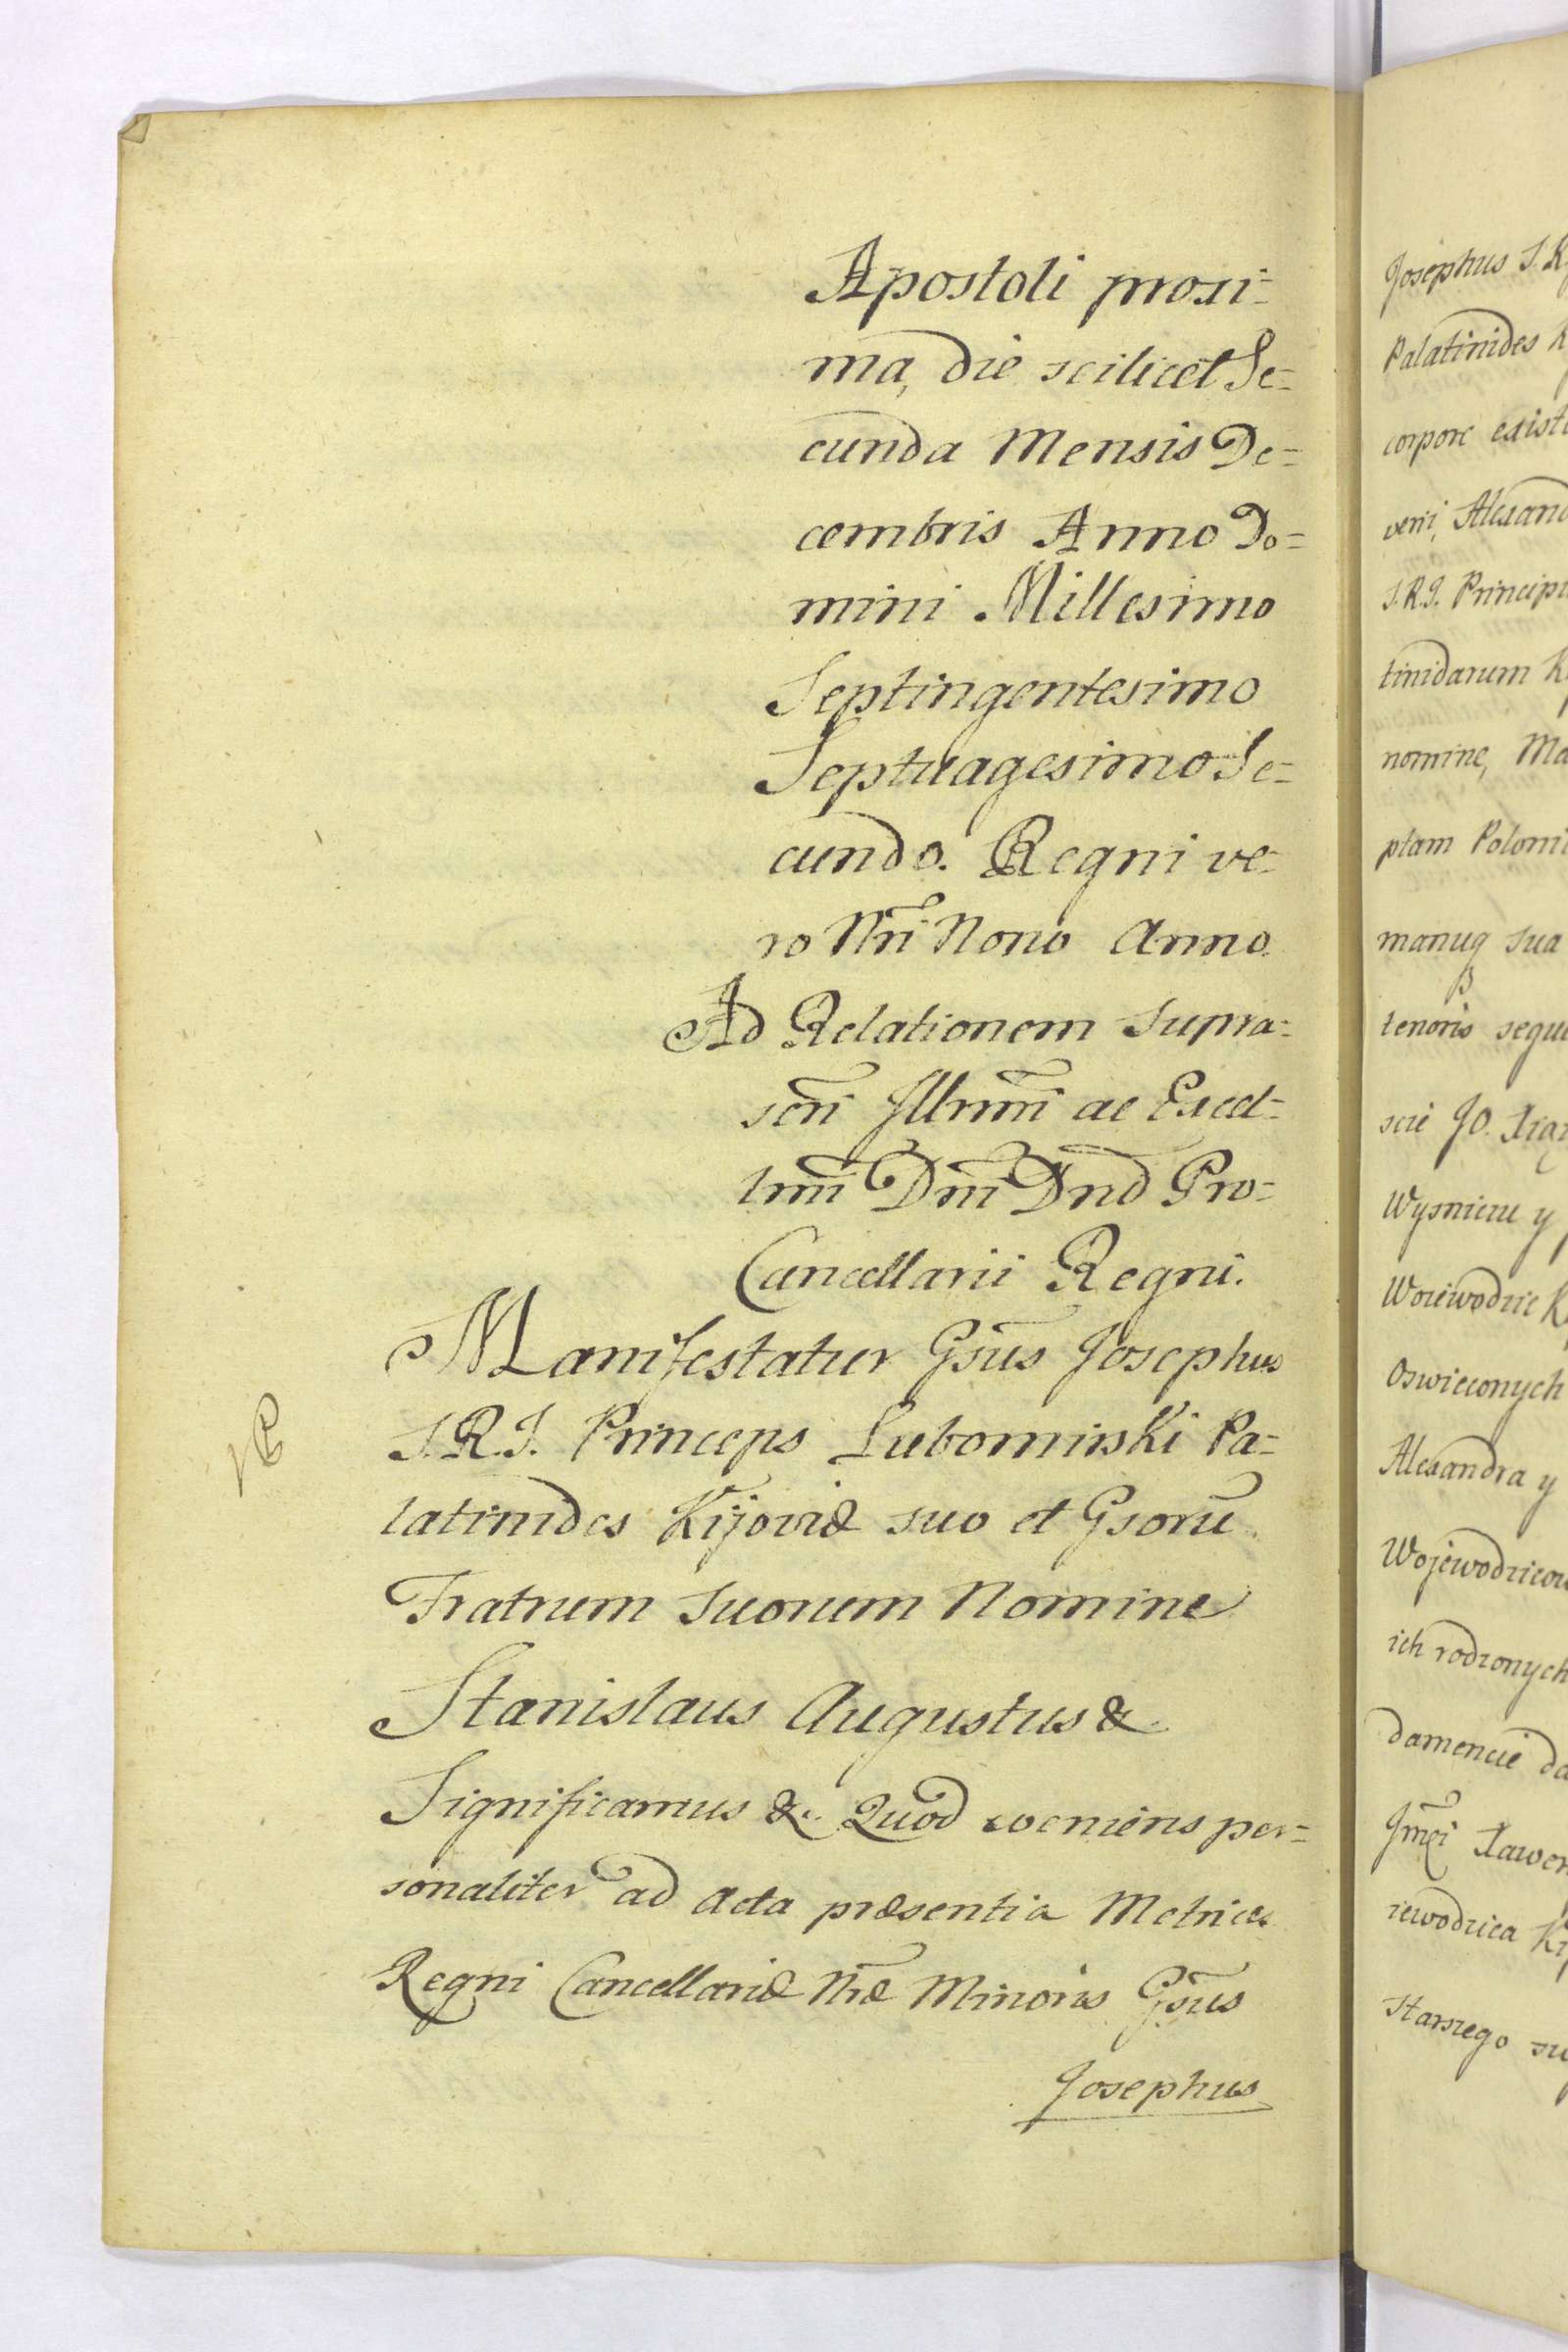 Apostoli proxi=
ma, die scilicet Se=
cunda Mensis De=
cembris Anno Do=
mini Millesimo
Septingentesimo
Septuagesimo Se=
cundo. Regni ve=
ro Nri Nono Anno.
Ad Relationem supra=
scri Illmi ac Excel=
lmi Dni Dnd Pro=
Cancellarii Regni.
Manifestatur Gsus Josephus
S.R.I. Princeps Lubomirski Pa=
latinides Kijoviæ suo et Gsorũ
Fratrum suorum Nomine
Stanislaus Augustus &
Significamus &. Quod veniens per=
sonaliter ad Acta præsentia Metrices
Regni Cancellariæ Nræ Minoris Gsus
Josephus
Josephus S.R.
Palatinides K
corpore existe
veni, Alexand
S.R.I. Principu
tinidarum Ki
nomine, Ma
ptam Poloni
manuq sua
tenoris seque
scie JO. Xiąż
Wysniczu y
Woiewodzic K
Oswieconych
Alexandra y
Wojewodzicow
ich rodzonych
damencie da
Jmci Xawer
iewodzica Kij
Starszego su